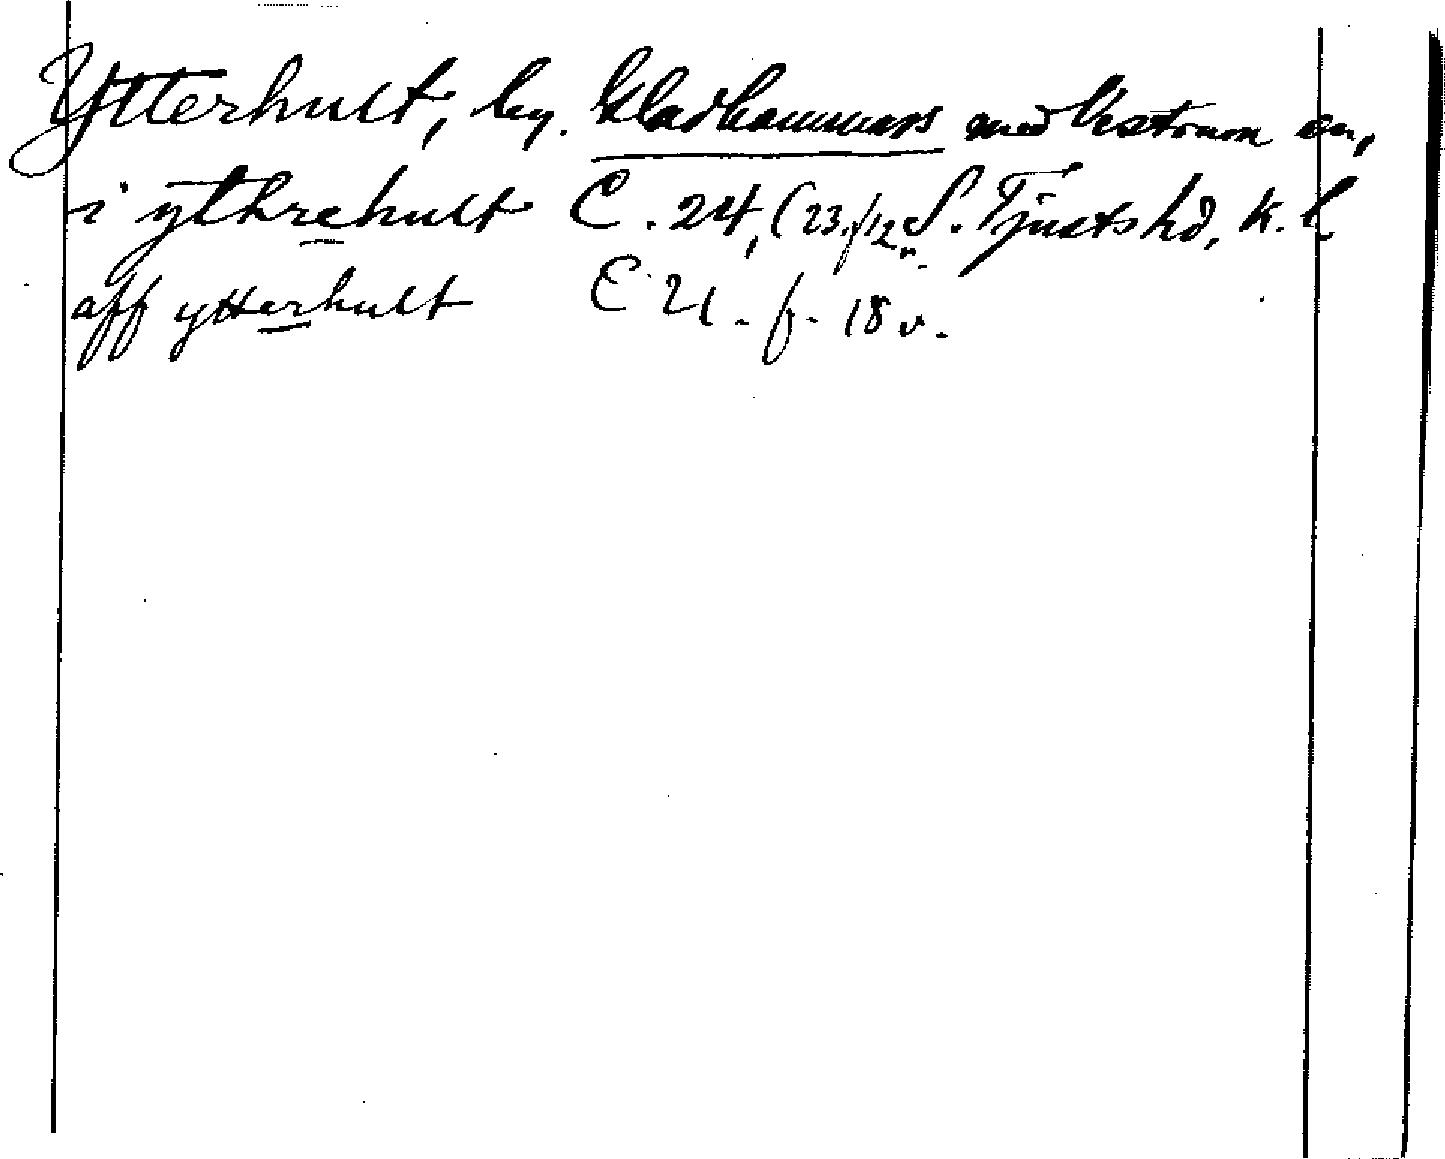 Ytterhult, by. Gladhammars med Vestrum sn,
i ythrehult C. 24, (23, f 12 r. S. Tjusts hd, K. l.
aff ytterhult C 21. f. 18 v.